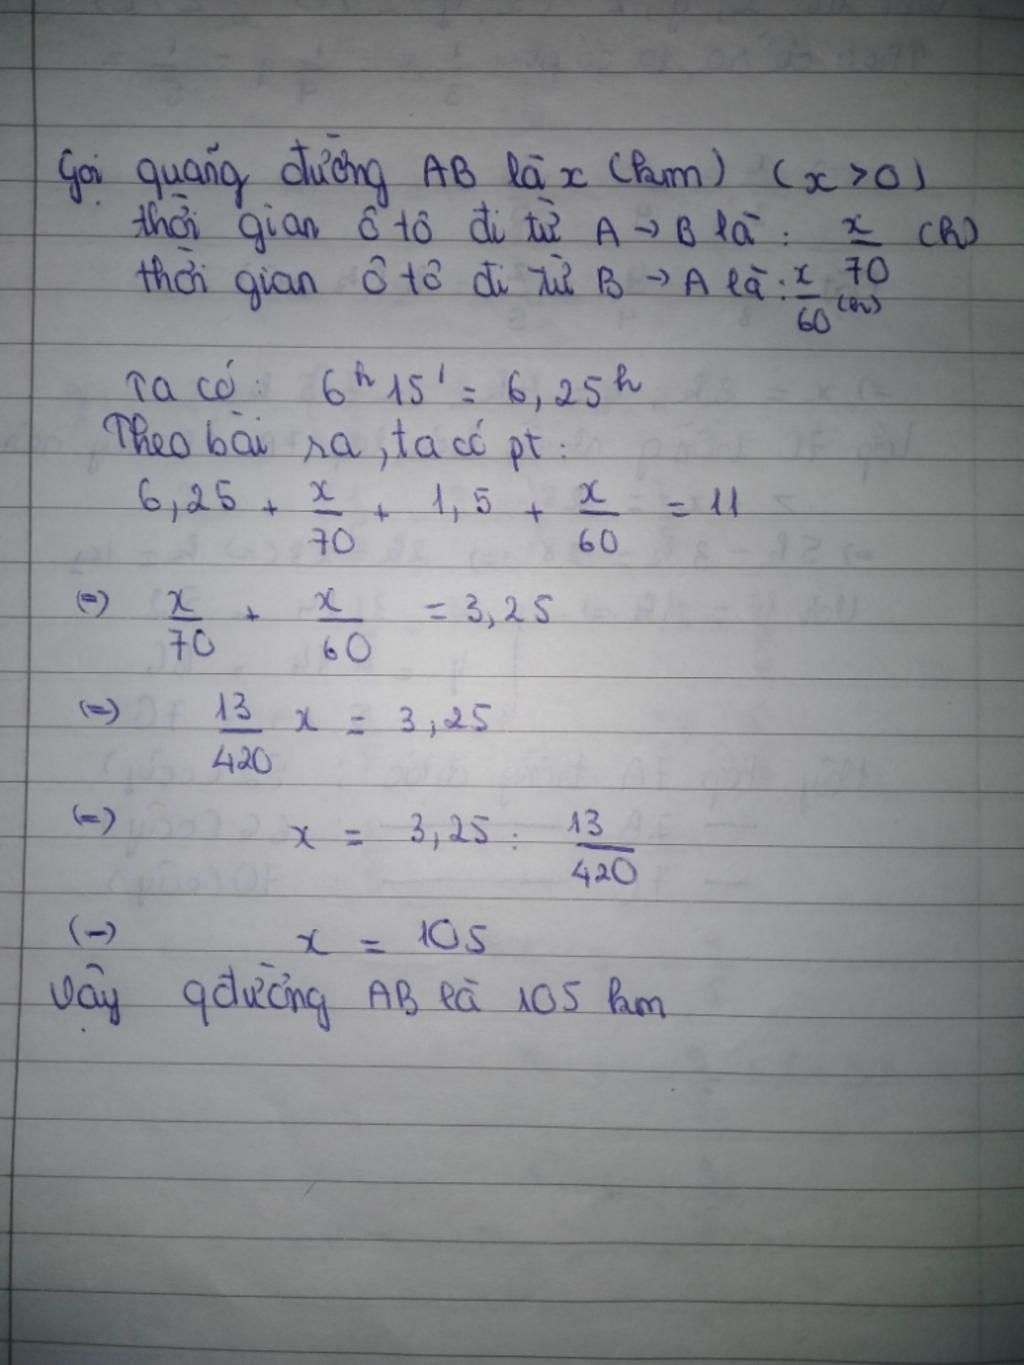 Gọi quãng đường AB là x (km) (x > 0)
thời gian ô tô đi từ A → B là: x/70 (h)
thời gian ô tô đi từ B → A là: x/60 (h)
Ta có: 6h 15' = 6,25h
Theo bài ra, ta có pt:
6,25 + x/70 + 1,5 + x/60 = 11
(=) x/70 + x/60 = 3,25
(=) 13/420 x = 3,25
(=) x = 3,25 : 13/420
(=) x = 105
Vậy qđường AB là 105 km